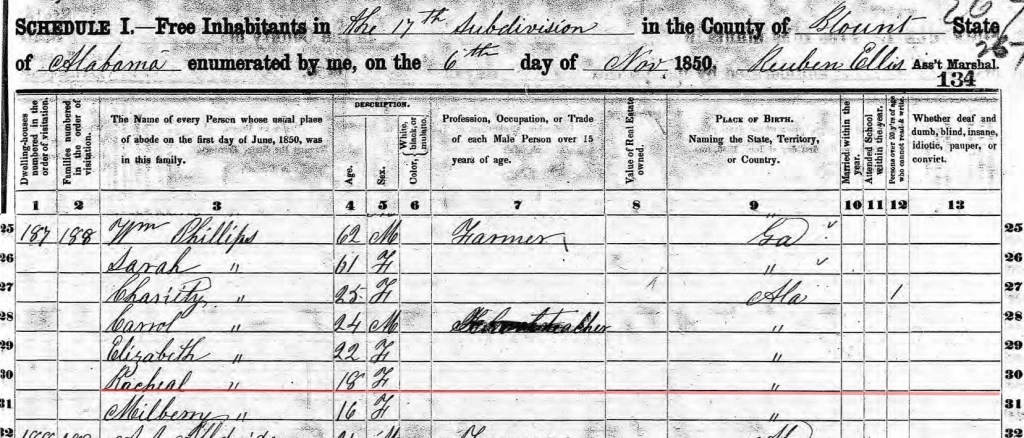 267
SCHEDULE I.—Free Inhabitants in the 17th Subdivision in the County of Blount State
of Alabama enumerated by me, on the 6th day of Nov. 1850. Reuben Ellis Ass't Marshal.
134
Dwelling-houses numbered in the order of visitation.
Families numbered in the order of visitation.
The Name of every Person whose usual place of abode on the first day of June, 1850, was in this family.
DESCRIPTION.
Age.
Sex.
Color, White, black, or mulatto.
Profession, Occupation, or Trade of each Male Person over 15 years of age.
Value of Real Estate owned.
PLACE OF BIRTH. Naming the State, Territory, or Country.
Married within the year.
Attended School within the year.
Persons over 20 y'rs of age who cannot read & write.
Whether deaf and dumb, blind, insane, idiotic, pauper, or convict.
1 2 3 4 5 6 7 8 9 10 11 12 13
25 187 188 Wm Phillips 62 M Farmer Ga 25
26 Sarah " 61 F " 26
27 Charity " 25 F Ala 1 27
28 Carrol " 24 M " 28
29 Elizabeth " 22 F " 29
30 Racheal " 18 F " 30
31 Milberry " 16 F " 31
32 32